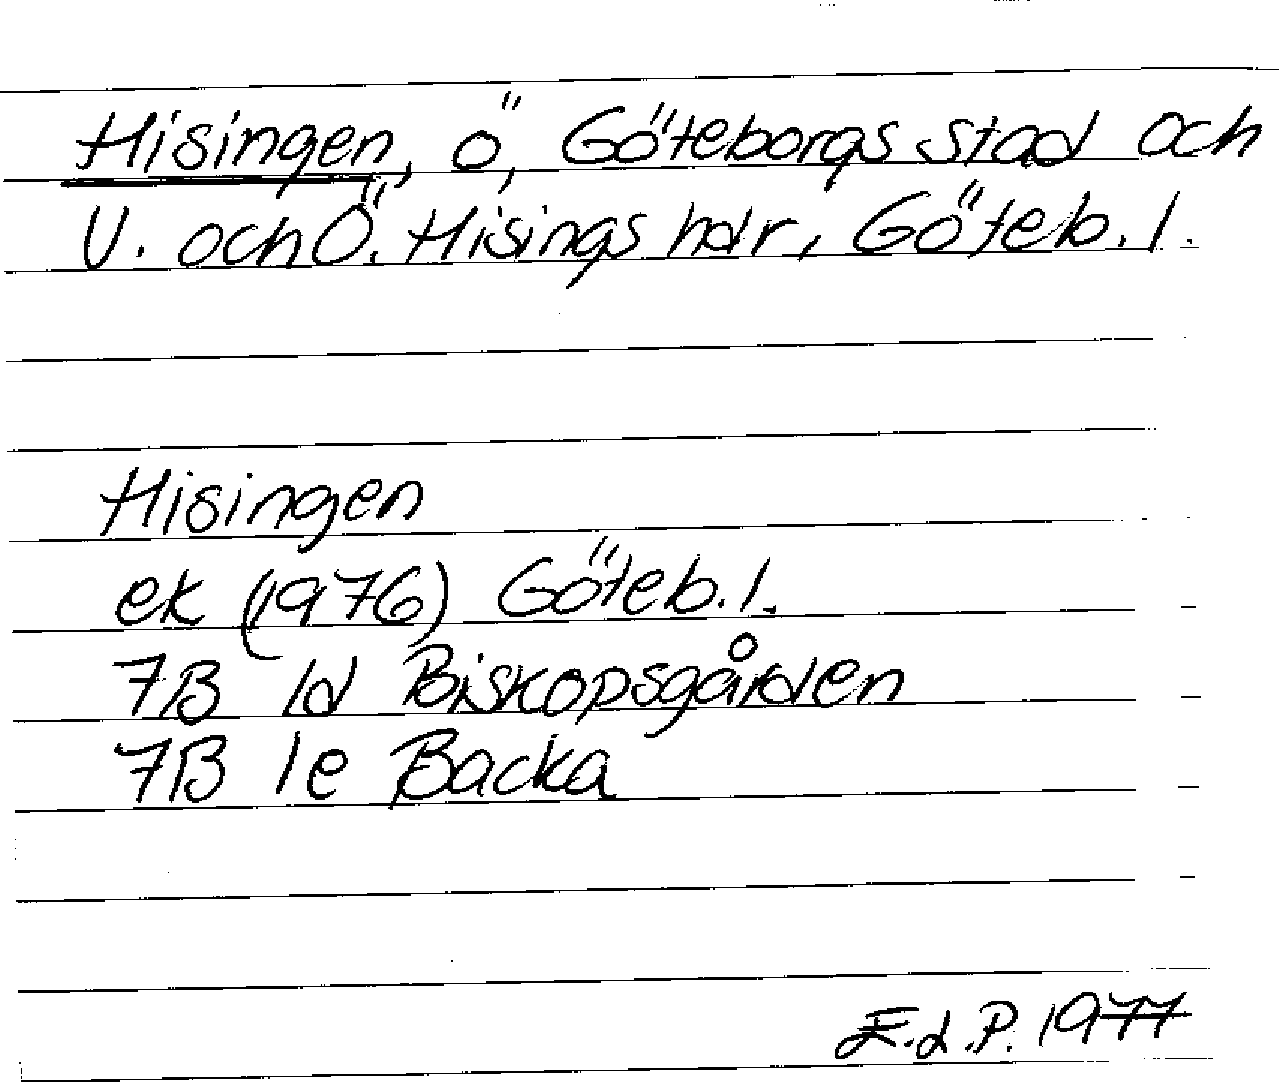 Hisingen, ö, Göteborgs stad och
V. och Ö. Hisings hdr, Göteb. l.
Hisingen
ek (1976) Göteb. l.
7B 1d Biskopsgården
7B 1e Backa
E.d.P. 1977